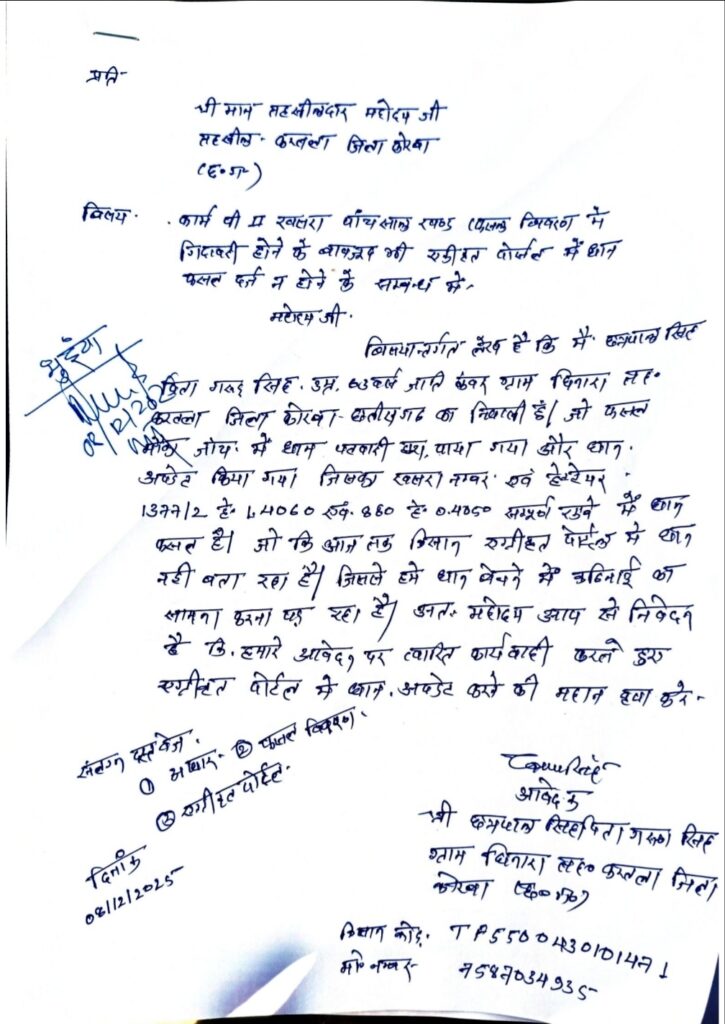 प्रति-
श्री मान तहसीलदार महोदय जी
तहसील- करतला जिला कोरबा
(छ०ग०)
विषय- फार्म बी II खसरा पांचसाला खण्ड फसल विवरण में
गिदावरी होने के बावजूद भी एग्रीहत पोर्टल में धान
फसल दर्ज न होने के सम्बन्ध में-
महोदय जी-
विषयान्तर्गत लेख है कि मैं छत्रपाल सिंह
पिता गरुड़ सिंह. उम्र. वर्ष जाति कंवर ग्राम चिनारा तह०
करतला जिला कोरबा- छत्तीसगढ़ का निवासी हूँ। जो फसल
मौका जांच में धान पटवारी द्वारा, पाया गया और धान.
अपडेट किया गया जिसका खसरा नम्बर एवं हेक्टेयर
1377/2 हे. 1.4060 एवं. 880 हे. 0.4050 सम्पूर्ण रकबे में धान
फसल है। जो कि आज तक किसान एग्रीहत पोर्टल में धान
नही बता रहा है। जिससे हमे धान बेचने में कठिनाई का
सामना करना पड़ रहा है। अतः महोदय आप से निवेदन
है कि. हमारे आवेदन पर त्वारित कार्यवाही करते हुए
एग्रीहत पोर्टल में धान. अपडेट करने की महान कृपा करे-
भुईया
संलग्न दस्तवेज.
① आधार- ② फसल विवरण.
③ एग्रीहत पोर्टल.
दिनांक
08/12/2025
आवेदक
श्री छत्रपाल सिंह पिता गरुड़ सिंह
ग्राम चिनारा तह० करतला जिला
कोरबा (छ०ग०)
किसान कोड. TP5500430101471
मो० नम्बर- 7587034935